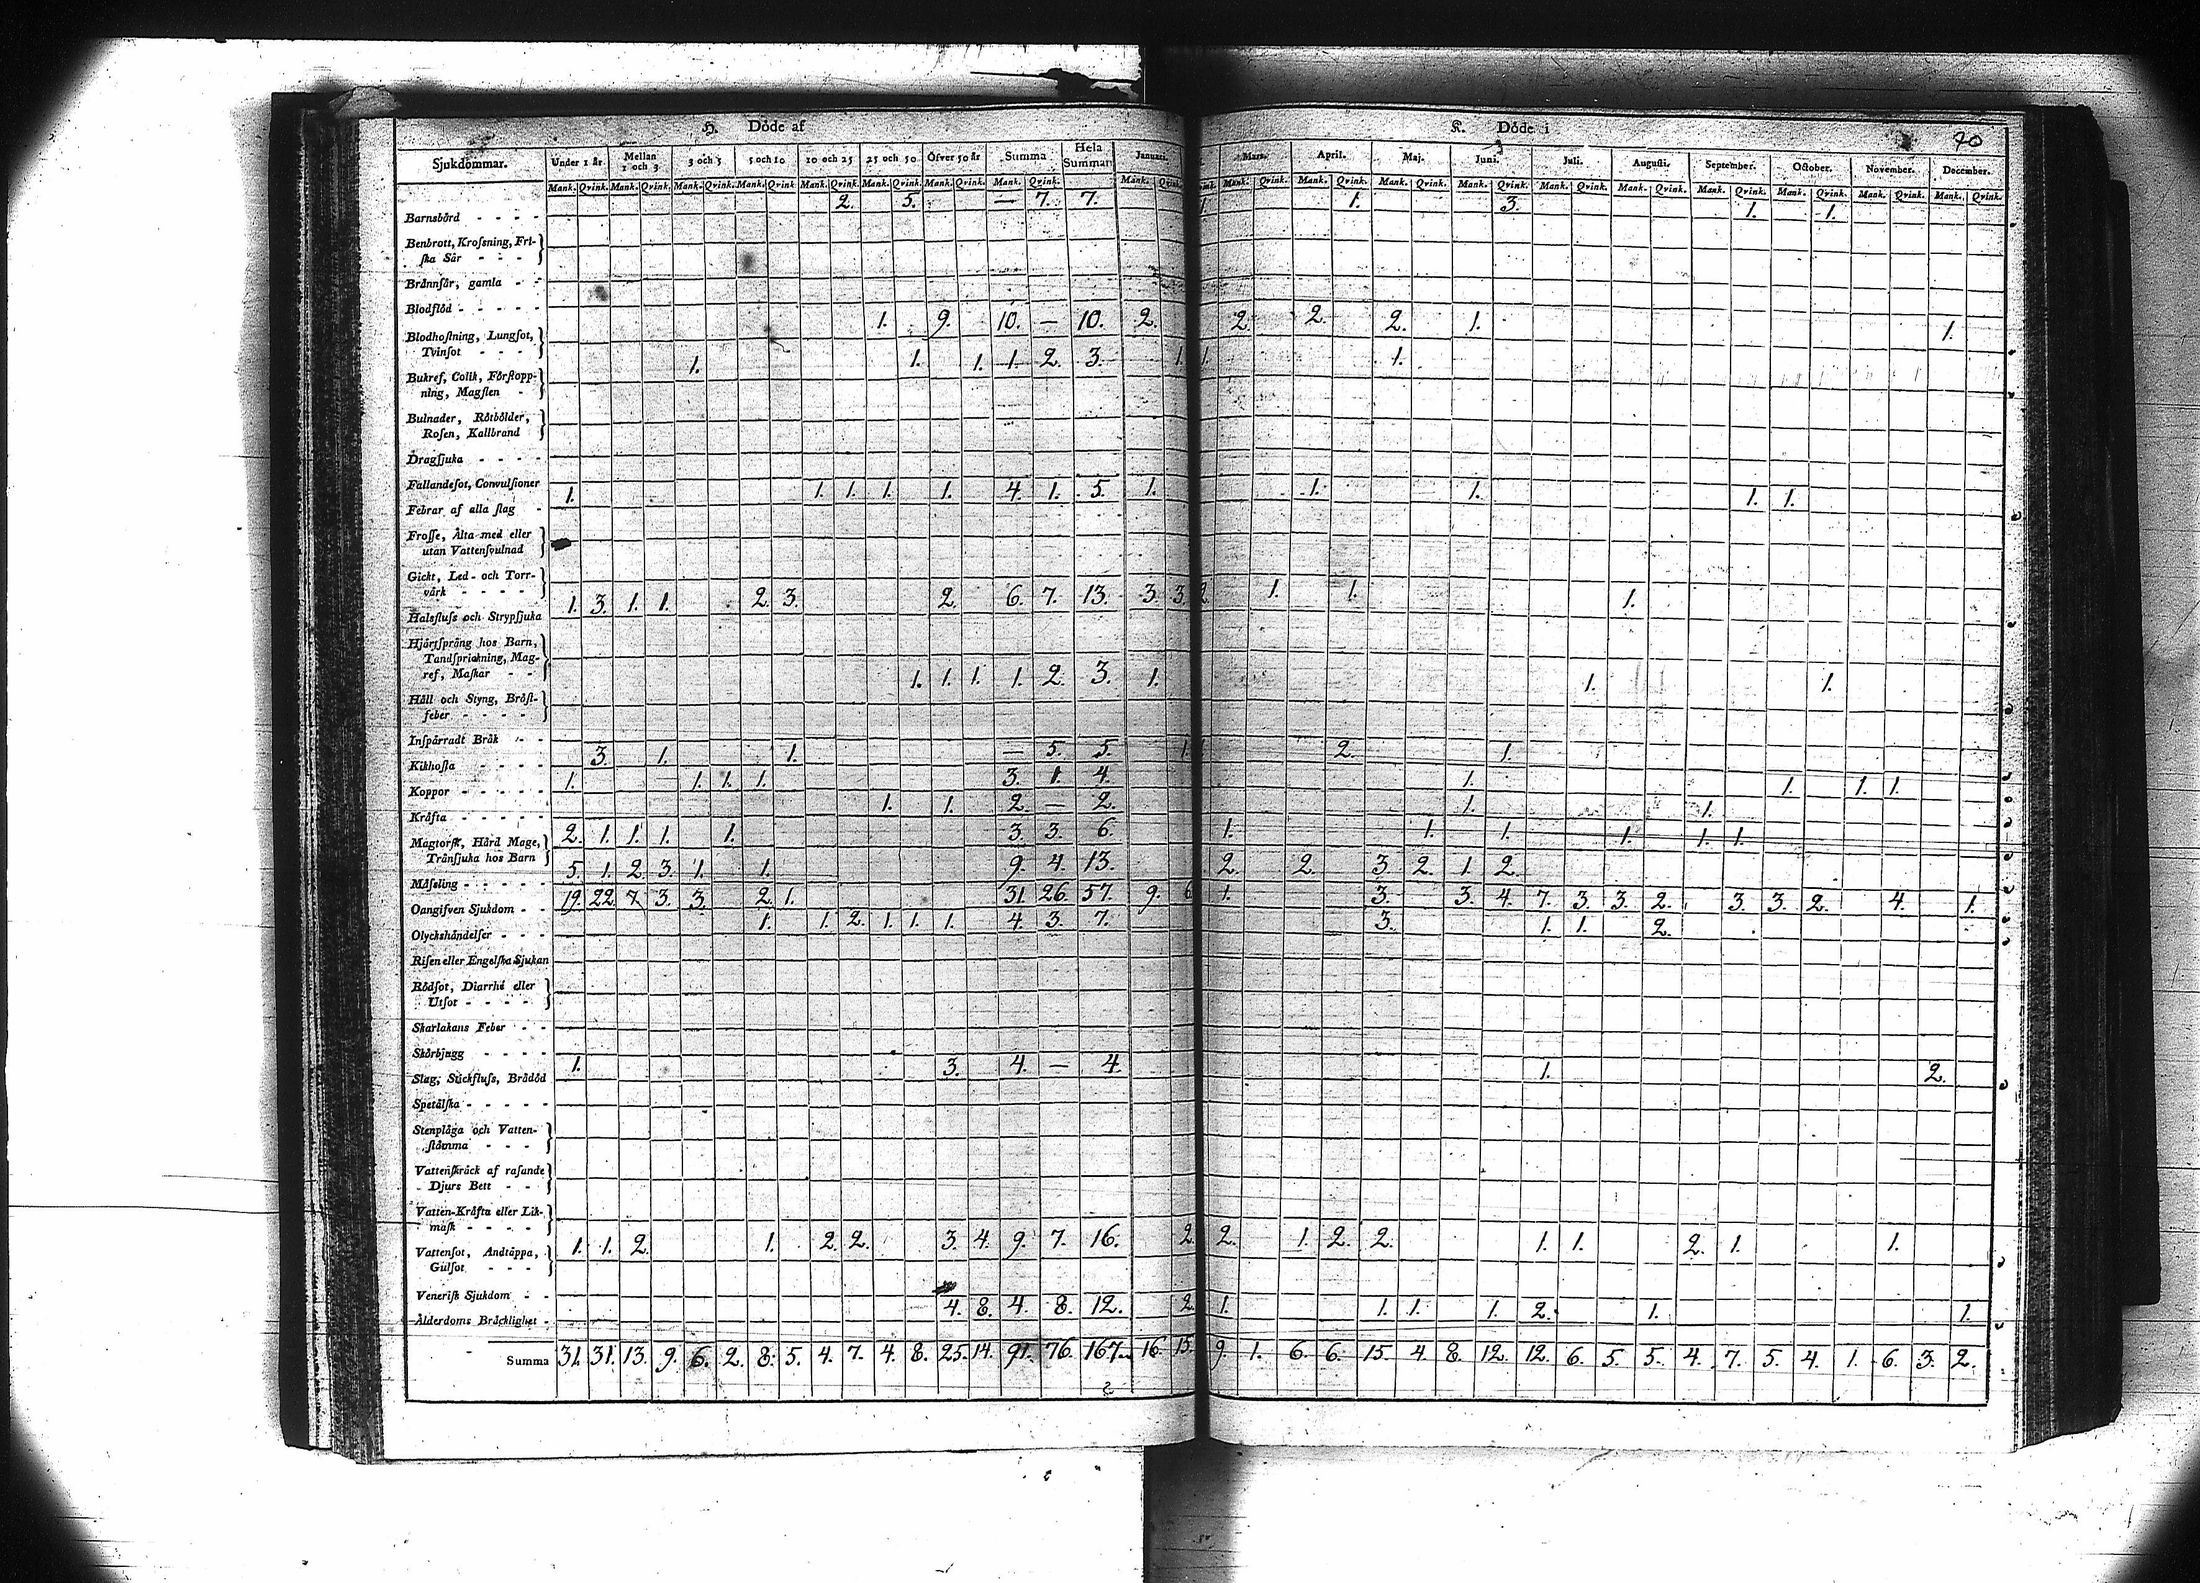 H. Döde af
K. Döde i
90
Sjukdommar. Under 1 år. Mellan 1 och 3 3 och 5 5 och 10 10 och 25 25 och 50 Öfver 50 år Summa Hela Summan Januari. Mars. April. Maj. Juni. Juli. Augusti. September. October. November. December.
Mank. Qvink. Mank. Qvink. Mank. Qvink. Mank. Qvink. Mank. Qvink. Mank. Qvink. Mank. Qvink. Mank. Qvink. Mank. Qvink. Mank. Qvink. Mank. Qvink. Mank. Qvink. Mank. Qvink. Mank. Qvink. Mank. Qvink. Mank. Qvink. Mank. Qvink. Mank. Qvink. Mank. Qvink.
Barnsbörd - - - - 2. 5. — 7. 7. 1. 1. 3. 1. 1.
Benbrott, Krosning, Fri-
ska Sår - - -
Brännsår, gamla - -
Blodflöd - - - - -
Blodhostning, Lungsot, 1. 9. 10. — 10. 2. 2. 2. 2. 1. 1.
Tvinsot - - - -
Bukref, Colik, Förstopp- 1. 1. 1. 1. 2. 3. 1. 1. 1.
ning, Magsten -
Bulnader, Rötbölder,
Rosen, Kallbrand
Dragsjuka - - - -
Fallandesot, Convulsioner
Febrar af alla slag - 1. 1. 1. 1. 1. 4. 1. 5. 1. 1. 1. 1. 1.
Frosse, Älta med eller
utan Vattensvulnad
Gicht, Led- och Torr-
värk - - - -
Halsfluss och Strypsjuka 1. 3. 1. 1. 2. 3. 2. 6. 7. 13. 3. 3. 2. 1. 1. 1.
Hjärtsprång hos Barn,
Tandsprickning, Mag-
ref, Maskar - -
Håll och Styng, Bröst- 1. 1. 1. 1. 2. 3. 1. 1. 1.
feber - - - -
Insparradt Bråk - -
Kikhosta - - - - 3. 1. 1. — 5. 5. 1. 1 2. 1.
Koppor - - - - - 1. 1. 1. 1. 3. 1. 4. 1. 1. 1. 1.
Kräfta - - - - - 1. 1. 2. — 2. 1. 1.
Magtorsk, Hård Mage, 2. 1. 1. 1. 1. 3. 3. 6. 1. 1. 1. 1. 1. 1.
Transjuka hos Barn
Mässling - - - - - 5. 1. 2. 3. 1. 1. 9. 4. 13. 2. 2. 3. 2. 1. 2.
Oangifven Sjukdom - - 19. 22. 7. 3. 3. 2. 1. 31. 26. 57. 9. 6 1. 3. 3. 4. 7. 3. 3. 2. 3. 3. 2. 4. 1.
Olyckshändelser - - - 1. 1. 2. 1. 1. 1. 4. 3. 7. 3. 1. 1. 2.
Risen eller Engelska Sjukan
Rödsot, Diarrhé eller
Utsot - - - -
Skarlakans Feber - -
Skörbjugg - - - -
Slag, Stickfluss, Brådöd 1. 3. 4. — 4. 1. 2.
Spetälska - - - - -
Stenplåga och Vatten-
stämma - - -
Vattenskräck af rasande
Djurs Bett - -
Vatten-Kräfta eller Lik-
mask - - - -
Vattensot, Andtäppa, 1. 1. 2. 1. 2. 2. 3. 4. 9. 7. 16. 2. 2. 1. 2. 2. 1. 1. 2. 1. 1.
Gulsot - - -
Venerisk Sjukdom - -
Ålderdoms Bräcklighet - 4. 8. 4. 8. 12. 2. 1. 1. 1. 1. 2. 1. 1.
Summa 31. 31. 13. 9. 6. 2. 8. 5. 4. 7. 4. 8. 25. 14. 91. 76. 167. 16. 15. 9. 1. 6. 6. 15. 4. 8. 12. 12. 6. 5. 5. 4. 7. 5. 4. 1. 6. 3. 2.